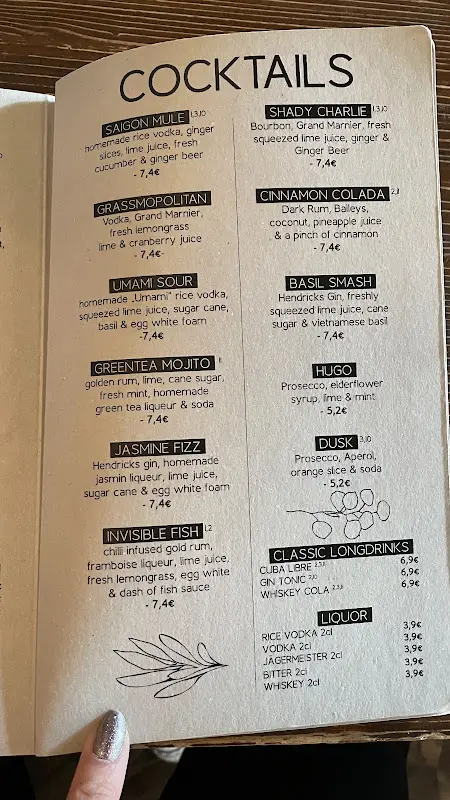 COCKTAILS
SAIGON MULE 1,3,10
homemade rice vodka, ginger
slices, lime juice, fresh
cucumber & ginger beer
- 7,4€
GRASSMOPOLITAN
Vodka, Grand Marnier,
fresh lemongrass
lime & cranberry juice
- 7,4€-
UMAMI SOUR
homemade „Umami" rice vodka,
squeezed lime juice, sugar cane,
basil & egg white foam
-7,4€
GREENTEA MOJITO 11
golden rum, lime, cane sugar,
fresh mint, homemade
green tea liqueur & soda
- 7,4€
JASMINE FIZZ
Hendricks gin, homemade
jasmin liqueur, lime juice,
sugar cane & egg white foam
- 7,4€
INVISIBLE FISH 1,2
chilli infused gold rum,
framboise liqueur, lime juice,
fresh lemongrass, egg white
& dash of fish sauce
- 7,4€
SHADY CHARLIE 1,3,10
Bourbon, Grand Marnier, fresh
squeezed lime juice, ginger &
Ginger Beer
- 7,4€
CINNAMON COLADA 2,11
Dark Rum, Baileys,
coconut, pineapple juice
& a pinch of cinnamon
- 7,4€
BASIL SMASH
Hendricks Gin, freshly
squeezed lime juice, cane
sugar & vietnamese basil
- 7,4€
HUGO
Prosecco, elderflower
syrup, lime & mint
- 5,2€
DUSK 3,10
Prosecco, Aperol,
orange slice & soda
- 5,2€
CLASSIC LONGDRINKS
CUBA LIBRE 6,9€
GIN TONIC 6,9€
WHISKEY COLA 6,9€
LIQUOR
RICE VODKA 2cl 3,9€
VODKA 2cl 3,9€
JÄGERMEISTER 2cl 3,9€
BITTER 2cl 3,9€
WHISKEY 2cl 3,9€